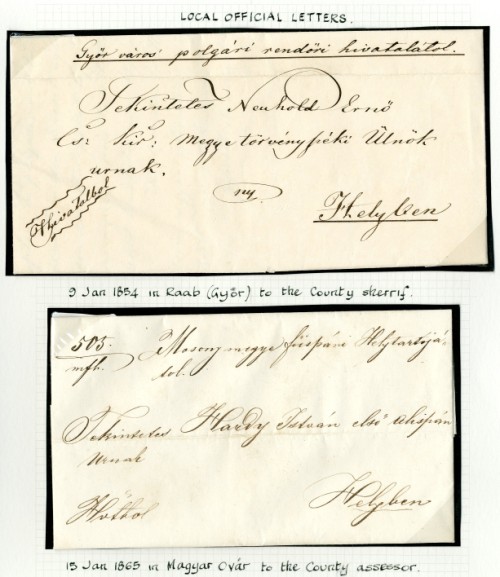 LOCAL OFFICIAL LETTERS.
Győr város polgári rendőri hivatalától.
Tekintetes Neuhold Ernő
Cs: Kir: Megyetörvényszéki Ülnök
urnak.
ny.
Hivatalból
Helyben
9 Jan 1854 in Raab (Győr) to the County sherrif.
503.
mfh.
Mosony megye főispáni Helytartójá-
tol.
Tekintetes Hardy István első alispán
Urnak
Helyben
15 Jan 1865 in Magyar Ovár to the County assessor.